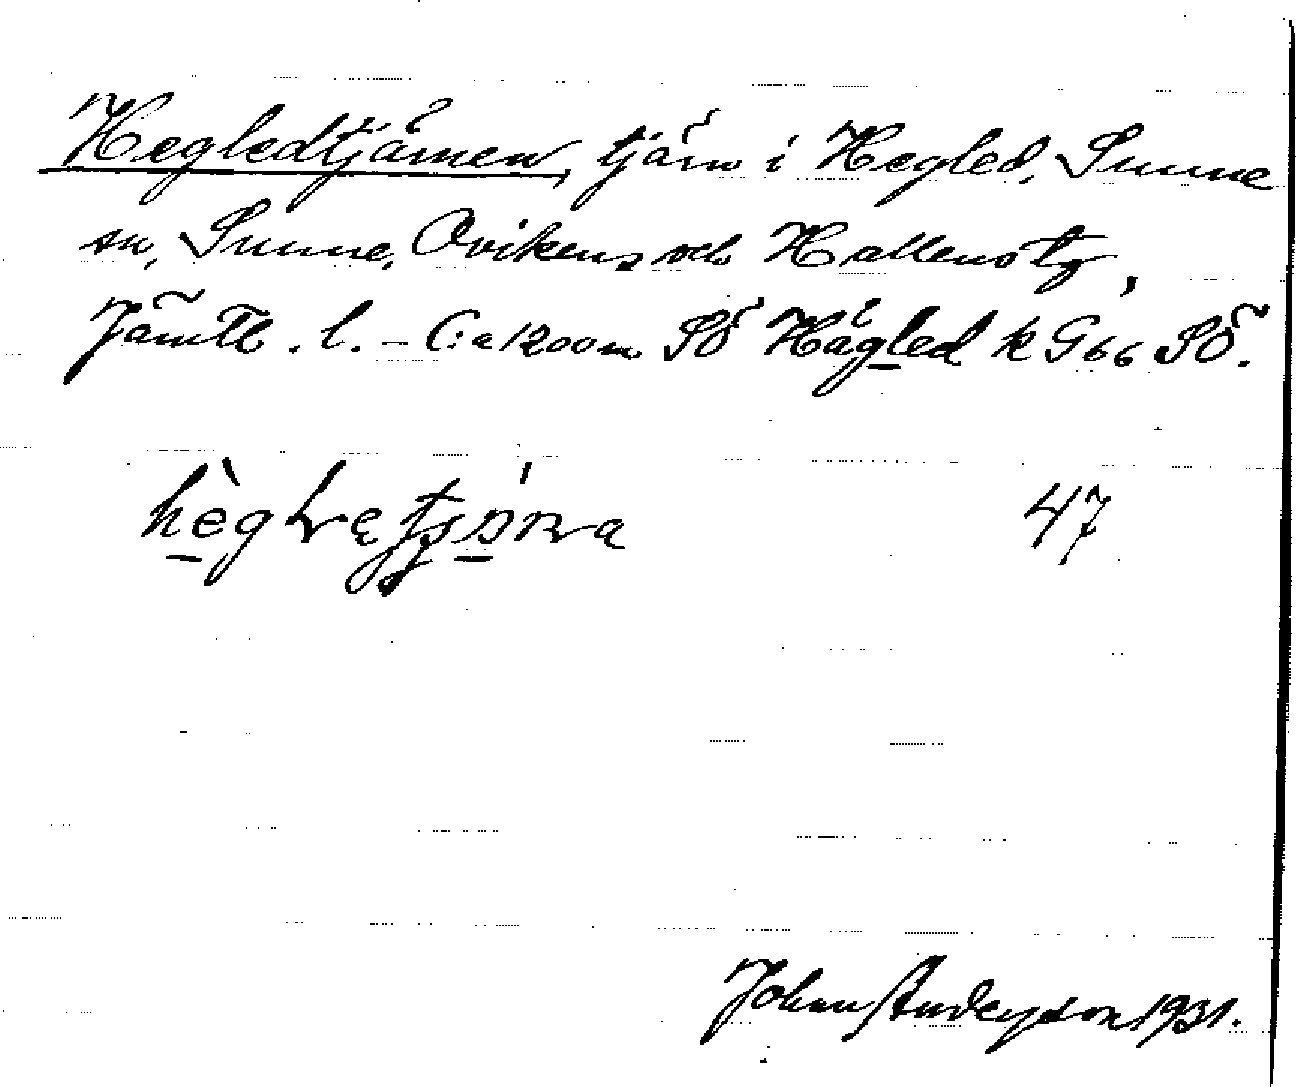 Hegledtjärnen, tjärn i Hegled, Sunne
sn, Sunne, Ovikens och Hallens tg,
Jämtl. l. – C:a 1200 m SÖ Hägled k G 66 SÖ.
47
John Anderson 1931.